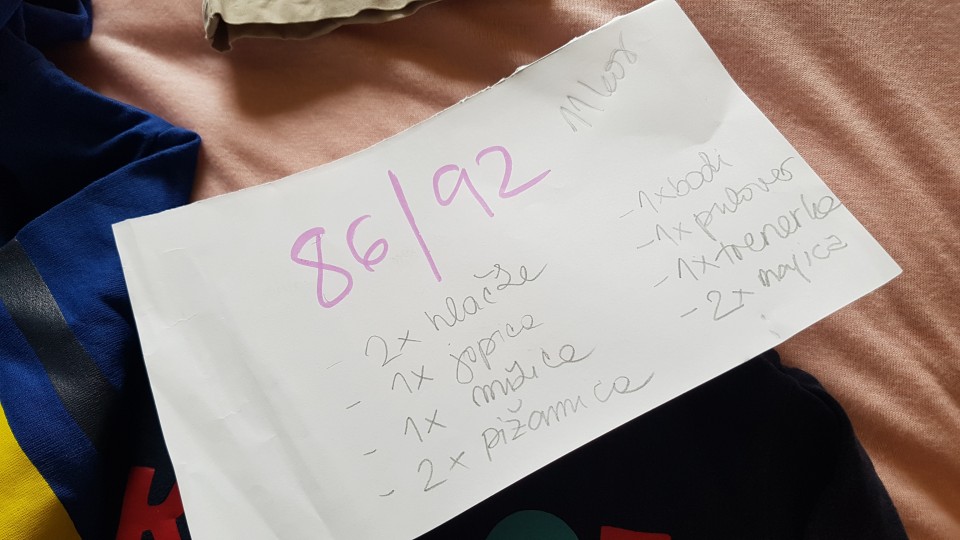 86/92
- 2x hlače
- 1x jopica
- 1x
- 2x pižamica
- 1x bodi
- 1x pulover
- 1x trenerka
- 2x majica